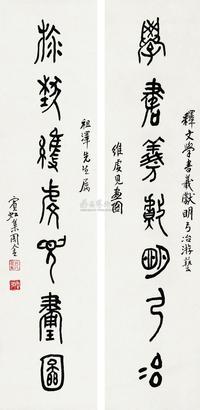 學書羲獻明弓冶
釋文學書羲獻明弓冶游藝
維虔見畫圖
游藝維虔見畫圖
祖澤先生屬
賓虹集周金